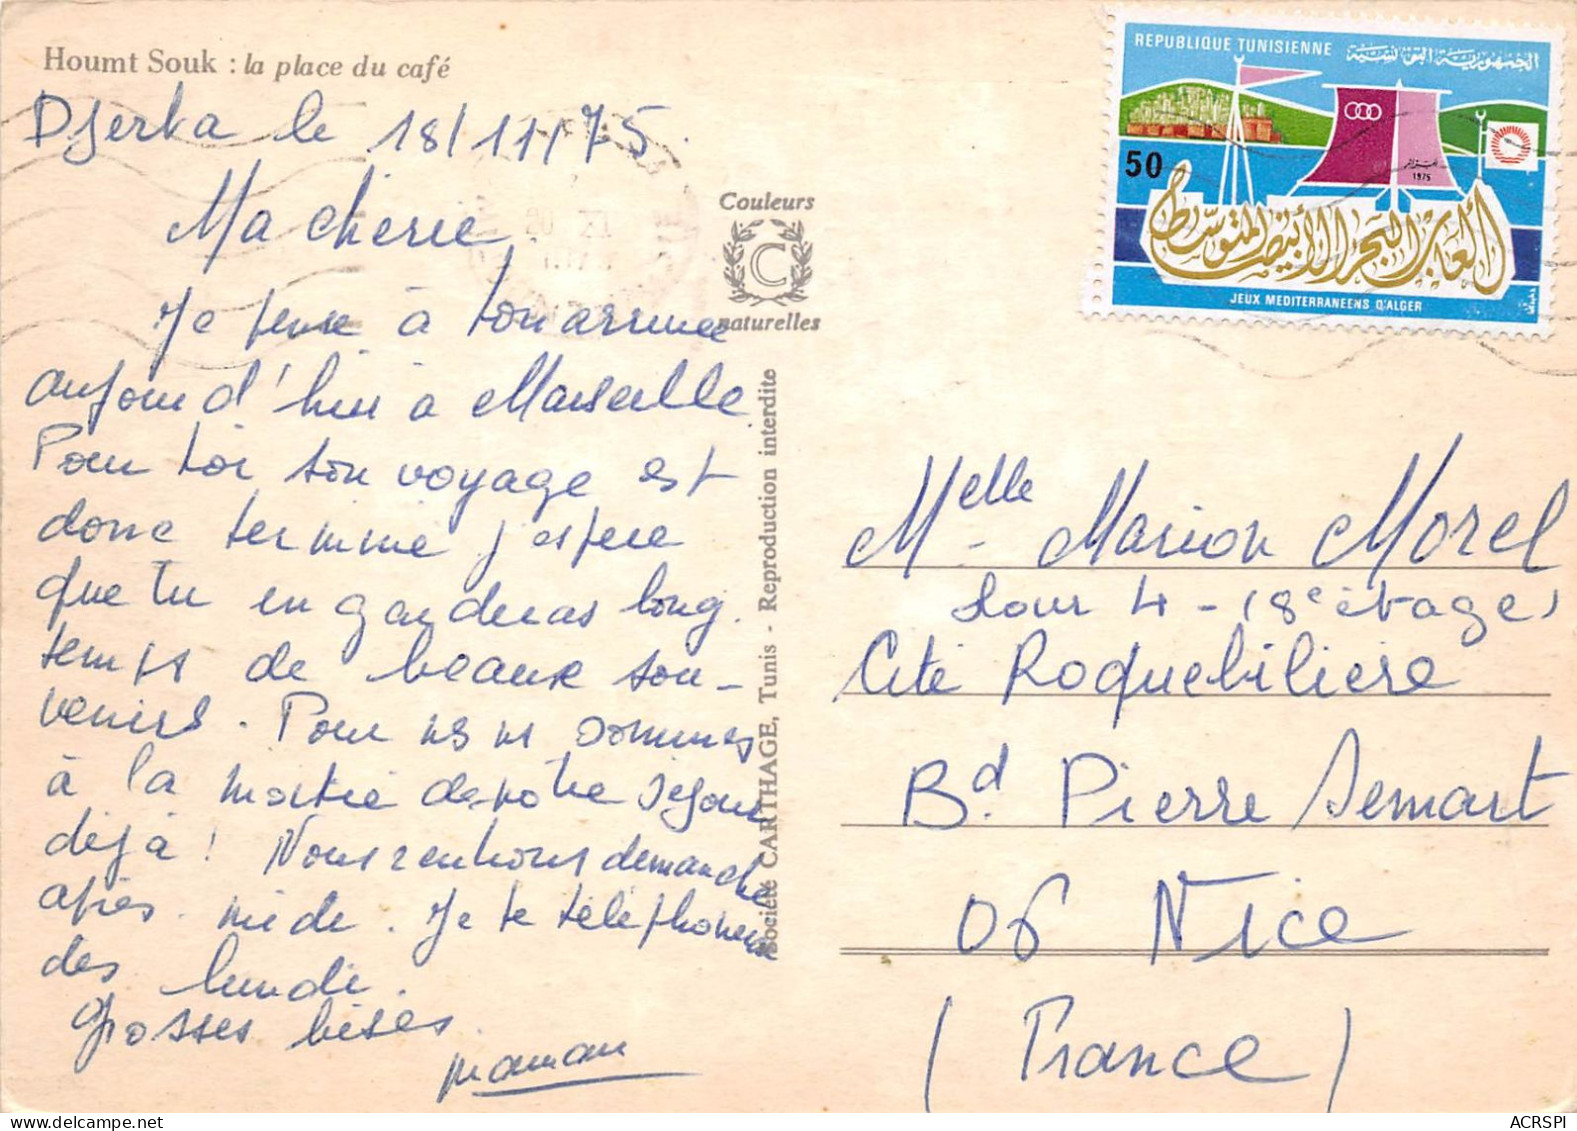 Houmt Souk : la place du café
Djerba le 18/11/75.
Ma chérie,
Je pense à ton arrivée
aujourd'hui à Marseille.
Pour toi ton voyage est
donc terminé j'espère
que tu en garderas long.
temps de beaux sou-
venirs. Pour ns ns sommes
à la moitié de notre séjour
déjà ! Nous rentrons dimanche
après midi. Je te téléphonerai
dès lundi.
Grosses bises.
maman
Couleurs
C
naturelles
Société CARTHAGE, Tunis - Reproduction interdite
REPUBLIQUE TUNISIENNE الجمهورية التونسية
50
الجزائر
1975
ألعاب البحر الأبيض المتوسط
JEUX MEDITERRANEENS D'ALGER
Melle Marion Morel
Tour 4 - (8e étage)
Cité Roquebilière
Bd Pierre Semart
06 Nice
(France)
ACRSPI